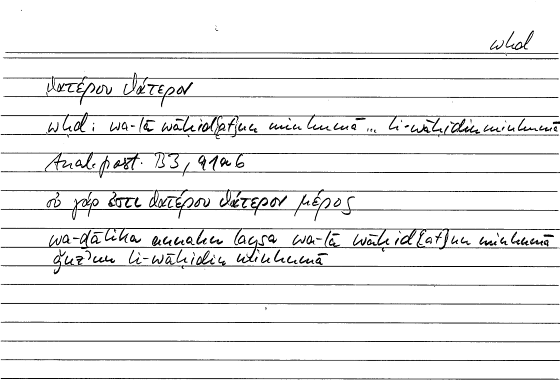 whd
θατέρου θάτερον
whd: wa-lā wāḥid[at]un minhumā ... li-wāḥidin minhumā
Anal. post. B3, 91a6
οὐ γάρ ἐστι θατέρου θάτερον μέρος
wa-ḏālika annahu laysa wa-lā wāḥid[at]un minhumā
ǧuzʾun li-wāḥidin minhumā